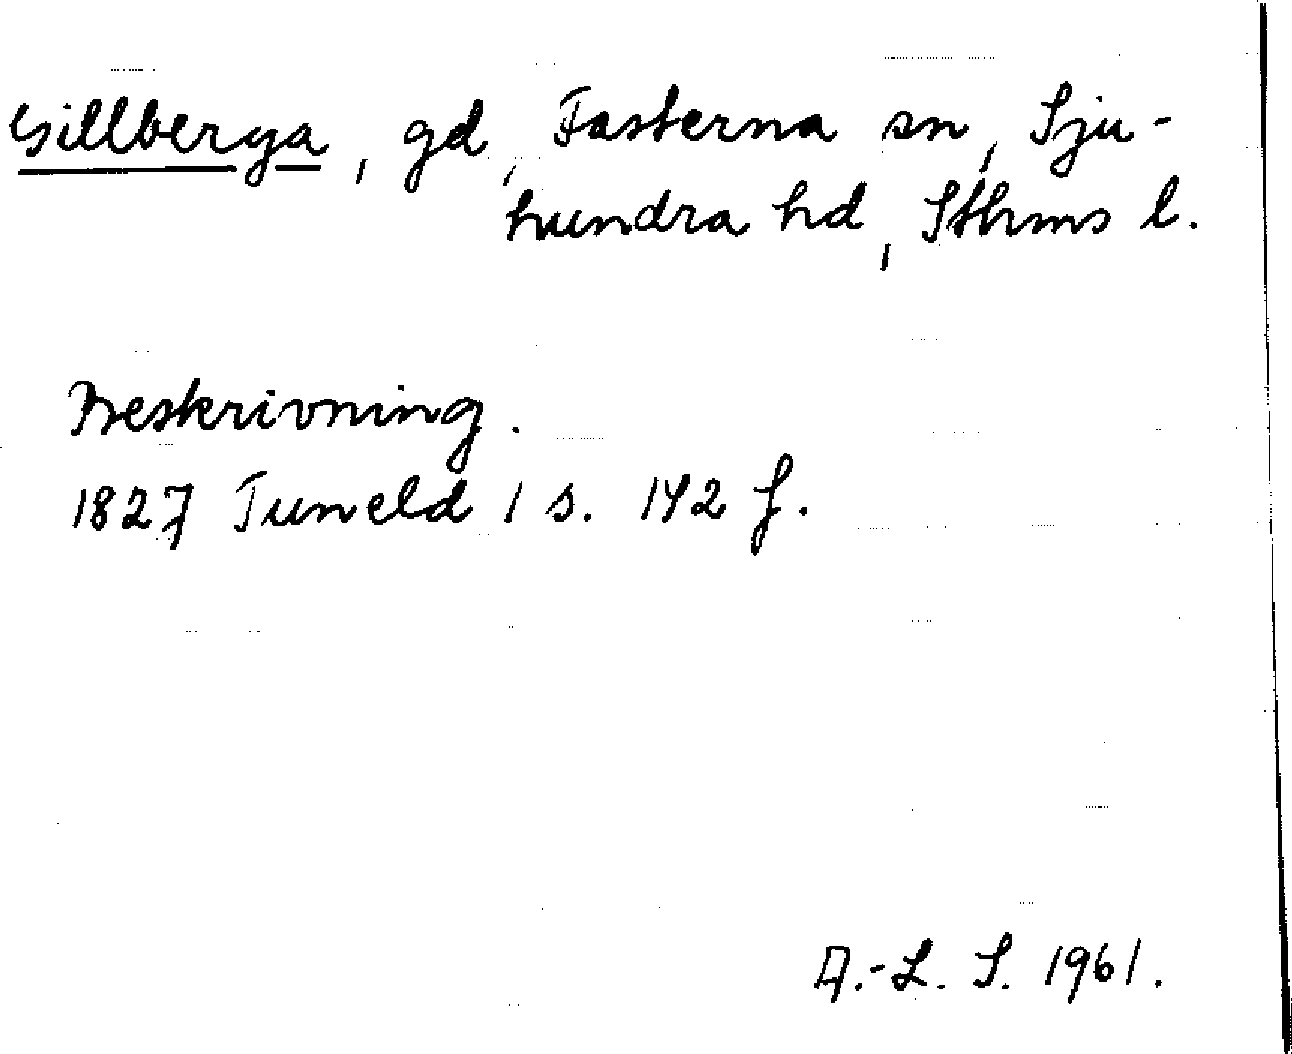 Gillberga, gd, Fasterna sn, Sju-
hundra hd, Sthms l.
Beskrivning.
1827 Tuneld 1 s. 142 f.
A.-L. S. 1961.